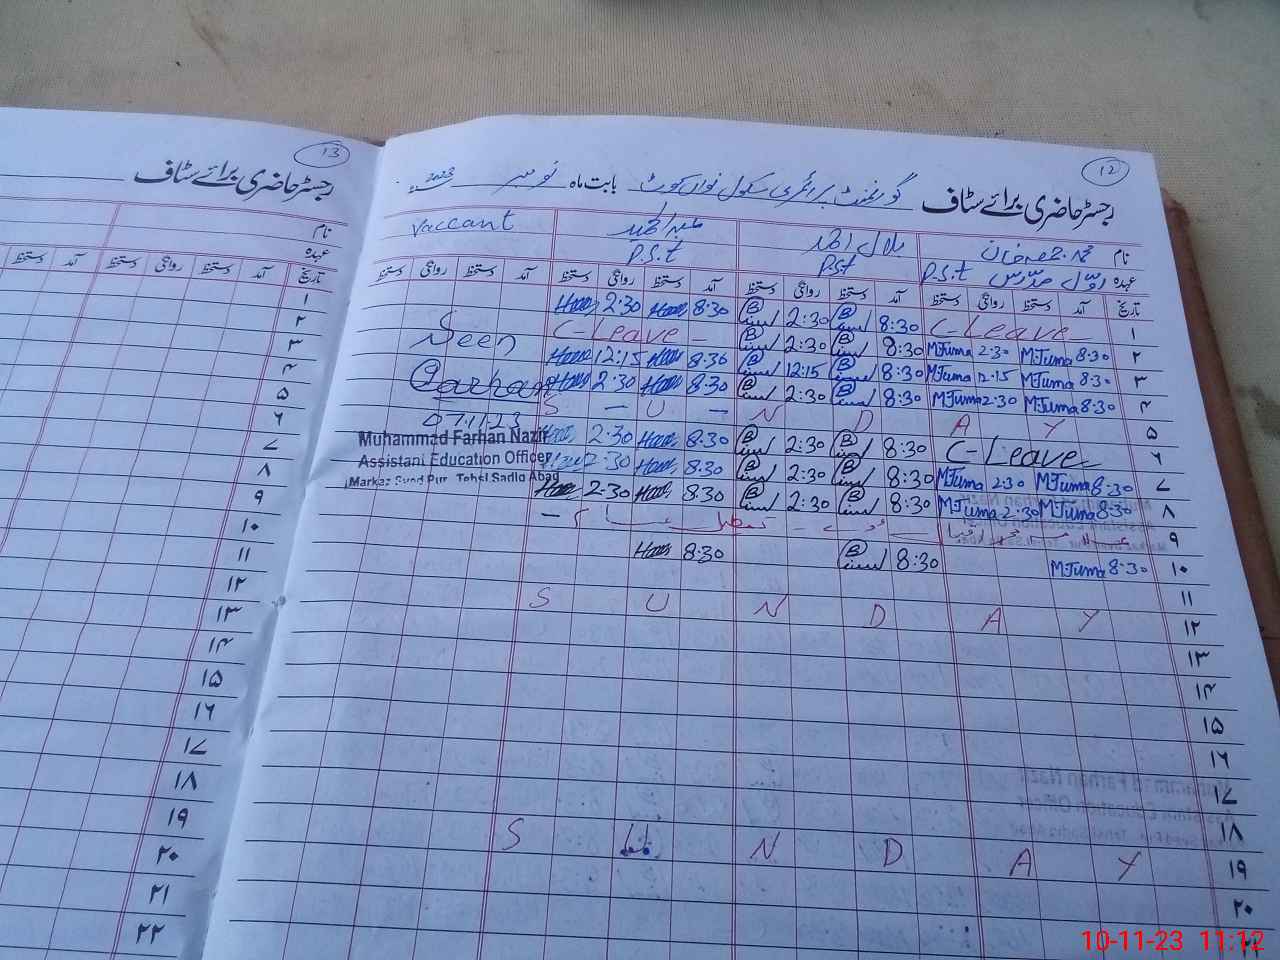 12
رجسٹر حاضری برائے سٹاف گورنمنٹ پرائمری سکول نواں کوٹ بابت ماہ نومبر 2023
نام محمد جمعہ خان بلال احمد Vaccant
عہدہ اول مدرس P.S.t P.St P.S.t
تاریخ آمد دستخط روانگی دستخط آمد دستخط روانگی دستخط آمد دستخط روانگی دستخط آمد دستخط روانگی دستخط
۱ C-Leave 8:30 2:30 8:30 2:30
۲ 8:30 M.Juma 2:30 M.Juma 8:30 2:30 C-Leave
۳ 8:30 M.Juma 12:15 M.Juma 8:30 12:15 8:30 12:15
۴ 8:30 M.Juma 2:30 M.Juma 8:30 2:30 8:30 2:30
۵ S U N D A Y
۶ C-Leave 8:30 2:30 8:30 2:30
۷ 8:30 M.Juma 2:30 M.Juma 8:30 2:30 8:30 2:30
۸ 8:30 M.Juma 2:30 M.Juma 8:30 2:30 8:30 2:30
۹ علامہ محمد اقبال تعطیل
۱۰ 8:30 M.Juma 8:30 8:30
۱۱
۱۲ S U N D A Y
۱۳
۱۴
۱۵
۱۶
۱۷
۱۸
۱۹ S N D A Y
۲۰
۲۱
Seen
Farhan
07.11.23
Muhammad Farhan Nazir
Assistant Education Officer
Markaz Syed Pur Tehsl Sadiq Abad
13
رجسٹر حاضری برائے سٹاف
نام
عہدہ
تاریخ آمد دستخط روانگی دستخط آمد دستخط
۱
۲
۳
۴
۵
۶
۷
۸
۹
۱۰
۱۱
۱۲
۱۳
۱۴
۱۵
۱۶
۱۷
۱۸
۱۹
۲۰
۲۱
۲۲
10-11-23 11:12